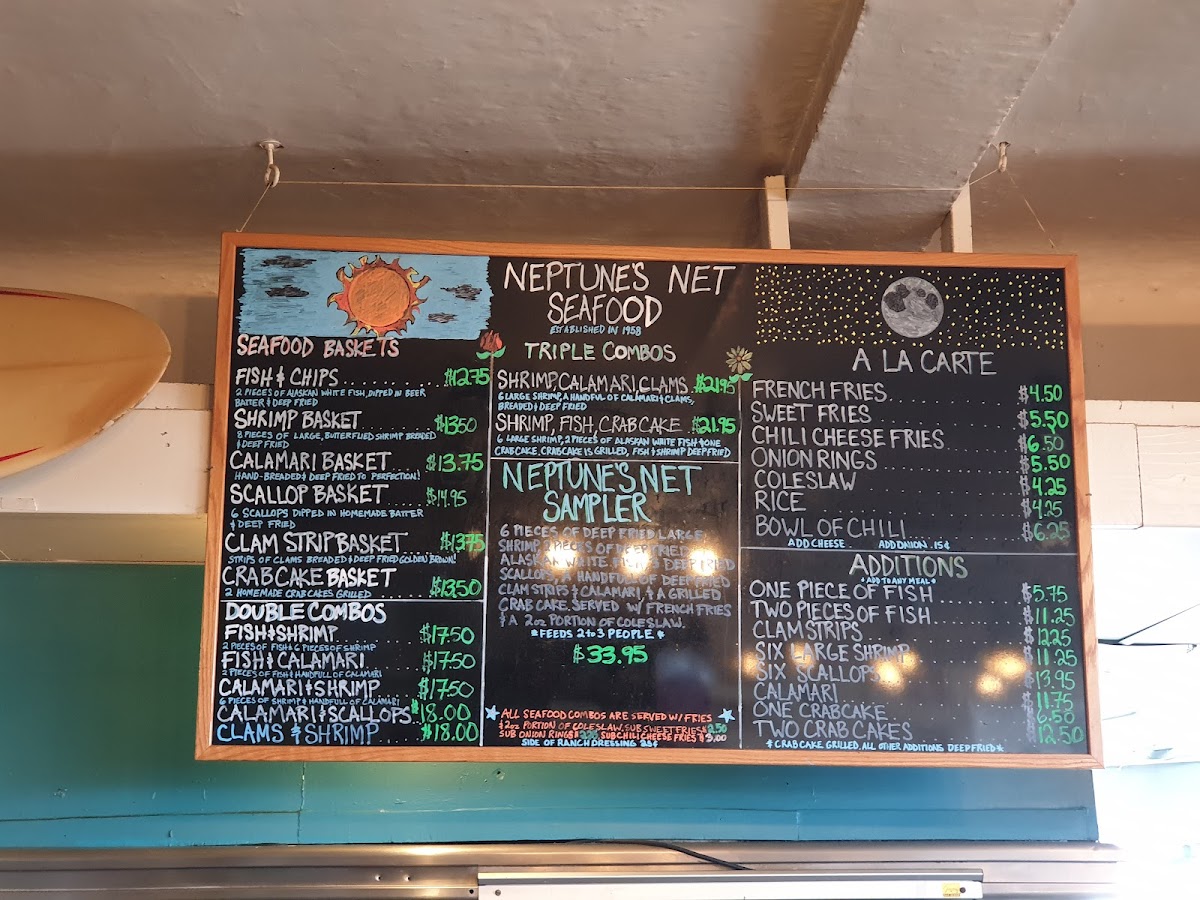 SEAFOOD BASKETS
FISH & CHIPS $12.75
2 PIECES OF ALASKAN WHITE FISH, DIPPED IN BEER
BATTER & DEEP FRIED
SHRIMP BASKET $13.50
8 PIECES OF LARGE, BUTTERFLIED SHRIMP BREADED
& DEEP FRIED
CALAMARI BASKET $13.75
HAND-BREADED & DEEP FRIED TO PERFECTION!
SCALLOP BASKET $14.95
6 SCALLOPS DIPPED IN HOMEMADE BATTER
& DEEP FRIED
CLAM STRIP BASKET $13.75
STRIPS OF CLAMS BREADED & DEEP FRIED GOLDEN BROWN!
CRABCAKE BASKET $13.50
2 HOMEMADE CRAB CAKES GRILLED
DOUBLE COMBOS
FISH & SHRIMP $17.50
2 PIECES OF FISH & 6 PIECES OF SHRIMP
FISH & CALAMARI $17.50
2 PIECES OF FISH & HANDFULL OF CALAMARI
CALAMARI & SHRIMP $17.50
6 PIECES OF SHRIMP & HANDFULL OF CALAMARI
CALAMARI & SCALLOPS $18.00
CLAMS & SHRIMP $18.00
NEPTUNE'S NET
SEAFOOD
ESTABLISHED IN 1958
TRIPLE COMBOS
SHRIMP, CALAMARI, CLAMS $21.95
6 LARGE SHRIMP, A HANDFUL OF CALAMARI & CLAMS,
BREADED & DEEP FRIED
SHRIMP, FISH, CRABCAKE $21.95
6 LARGE SHRIMP, 2 PIECES OF ALASKAN WHITE FISH & ONE
CRABCAKE. CRABCAKE IS GRILLED, FISH & SHRIMP DEEP FRIED
NEPTUNE'S NET
SAMPLER
6 PIECES OF DEEP FRIED LARGE
SHRIMP, 2 PIECES OF DEEP FRIED
ALASKAN WHITE FISH, DEEP FRIED
SCALLOPS, A HANDFUL OF DEEP FRIED
CLAM STRIPS & CALAMARI, & A GRILLED
CRAB CAKE. SERVED W/ FRENCH FRIES
& A 2oz PORTION OF COLESLAW.
* FEEDS 2 to 3 PEOPLE *
$33.95
ALL SEAFOOD COMBOS ARE SERVED W/ FRIES
& 2oz PORTION OF COLESLAW. SUB SWEET FRIES $2.50
SUB ONION RINGS SUB CHILI CHEESE FRIES
SIDE OF RANCH DRESSING
A LA CARTE
FRENCH FRIES $4.50
SWEET FRIES $5.50
CHILI CHEESE FRIES $6.50
ONION RINGS $5.50
COLESLAW $4.25
RICE $4.25
BOWL OF CHILI $6.25
ADD CHEESE ADD ONION .15¢
ADDITIONS
* ADD TO ANY MEAL *
ONE PIECE OF FISH $5.75
TWO PIECES OF FISH $11.25
CLAM STRIPS 12.25
SIX LARGE SHRIMP $11.25
SIX SCALLOPS $13.95
CALAMARI 11.75
ONE CRABCAKE 6.50
TWO CRAB CAKES 12.50
* CRAB CAKE GRILLED, ALL OTHER ADDITIONS DEEP FRIED *